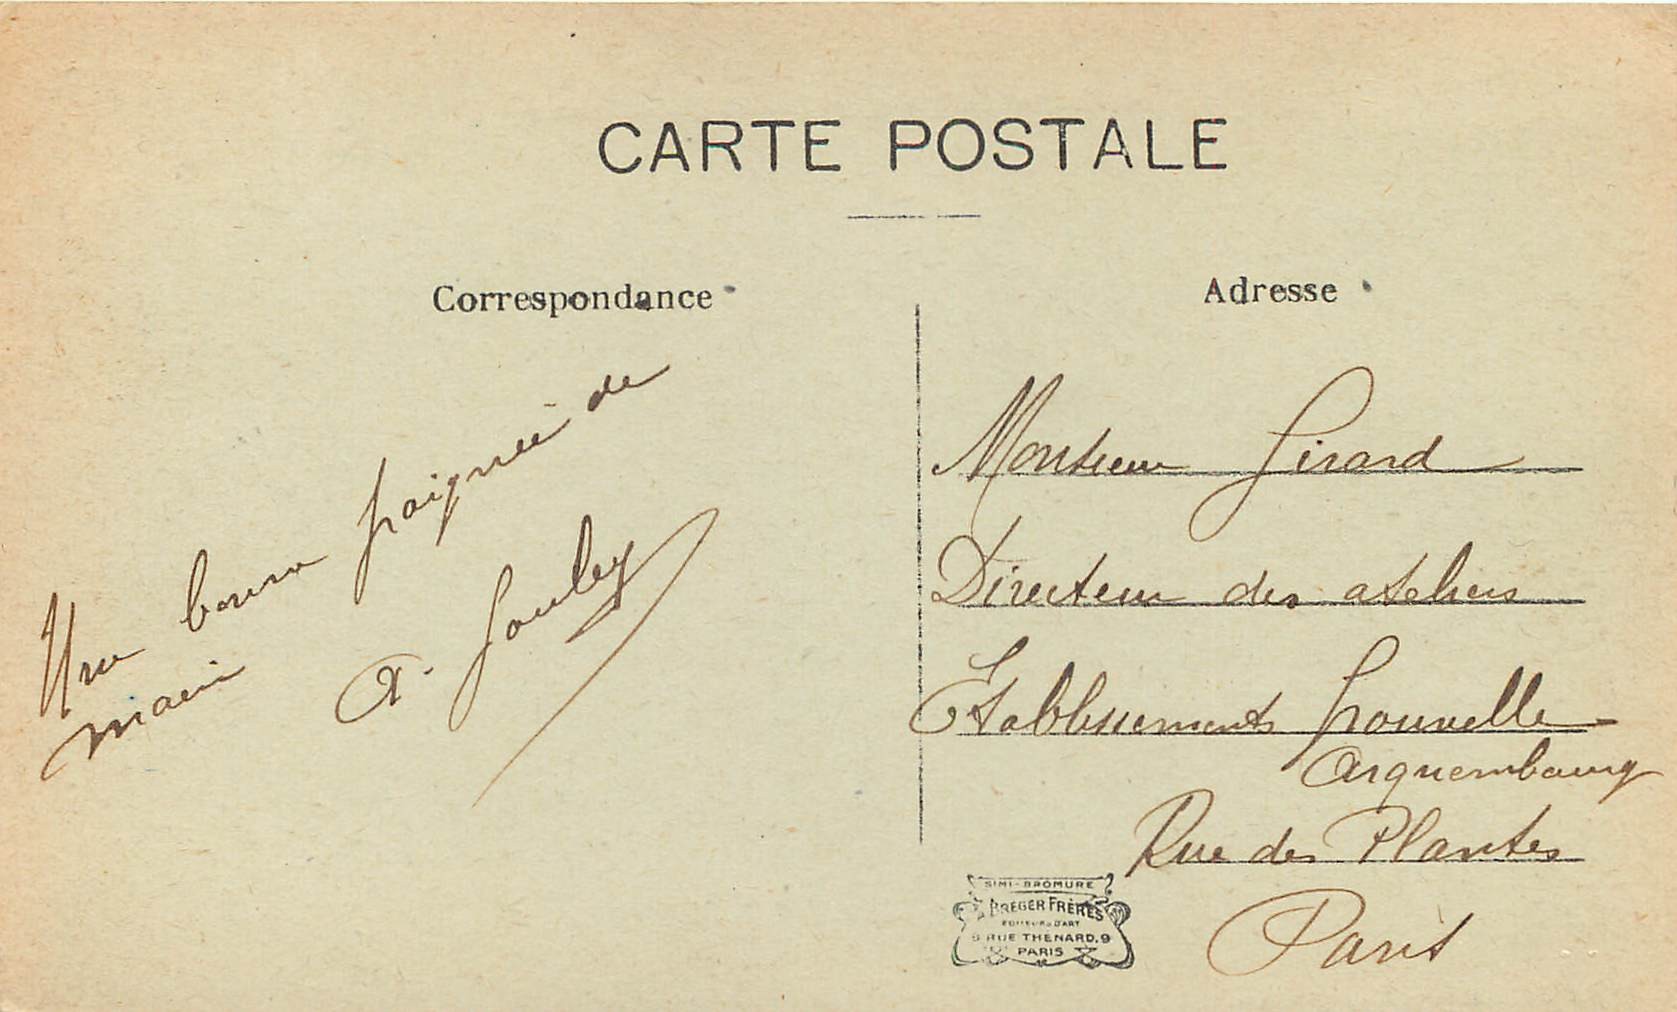 CARTE POSTALE
Correspondance
Une bonne poignée de
main
Adresse
Monsieur Girard
Directeur des ateliers
Etablissements Grouvelle
Arquembourg
Rue des Plantes
Paris
SIMI-BROMURE
BREGER FRÈRES
EDITEURS D'ART
9 RUE THENARD, 9
PARIS